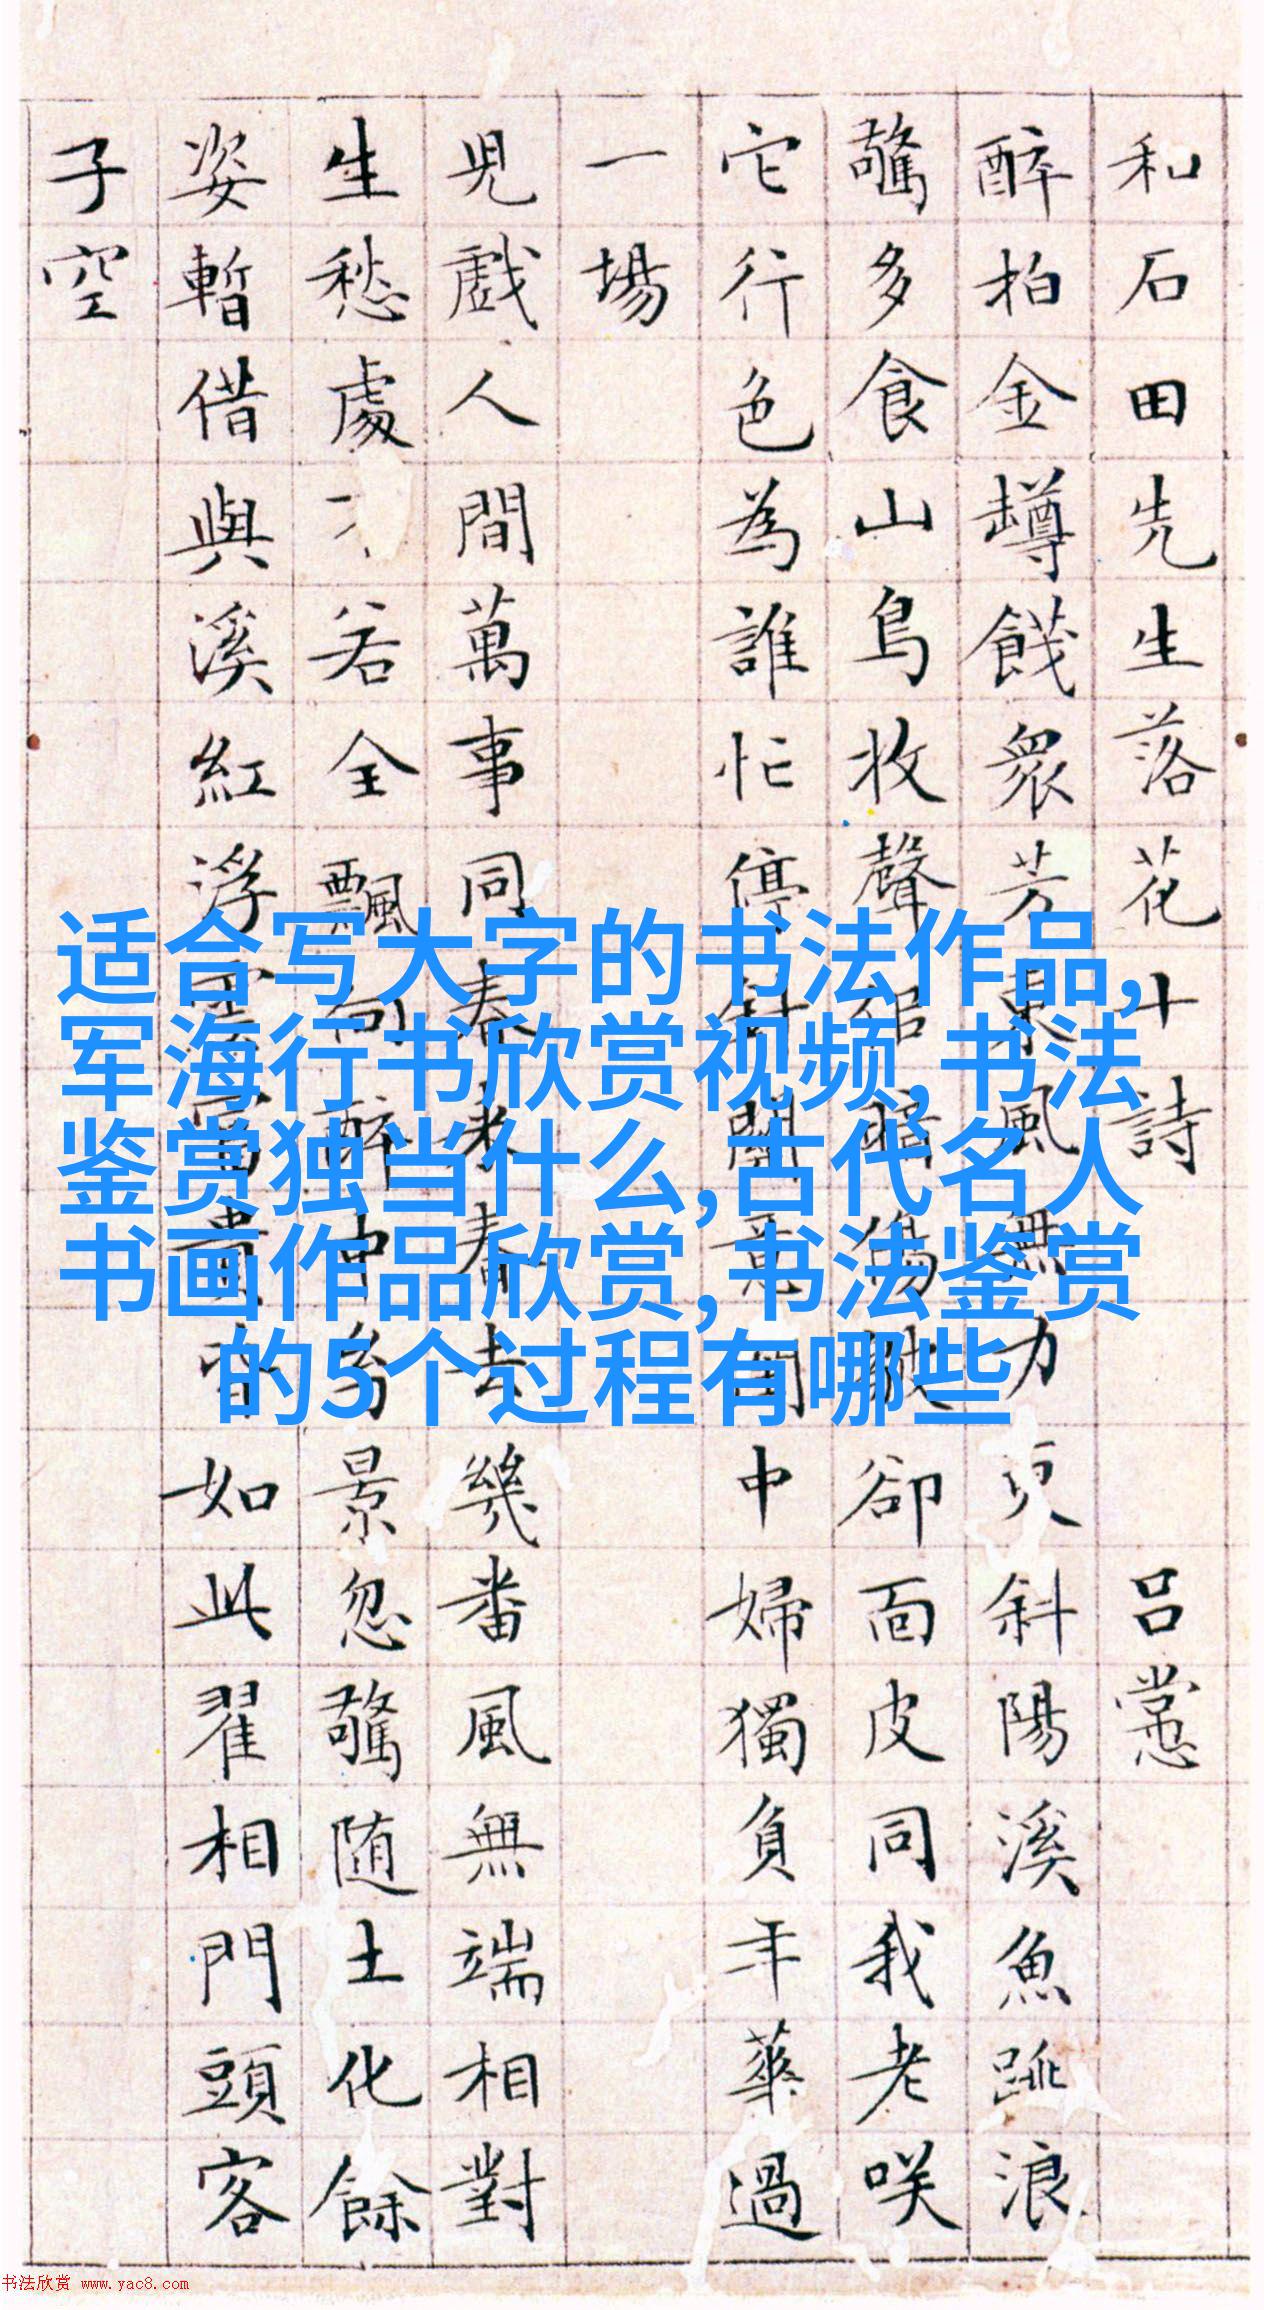 和石田先生落花十詩 呂㦂
醉拍金罇餞衆芳東風無力更斜陽溪魚跳浪
驚多食山鳥收聲卻面皮同我老咲
它行色為誰忙停針中婦獨負年華過
一場
兒戲人間萬事同春來春去幾番風無端相對
生愁處不若全飄向醉中景忽驚随土化餘
姿暫借與溪紅浮雲富貴皆如此翟相門頭客
子空
适合写大字的书法作品,
军海行书欣赏视频,书法
鉴赏独当什么,古代名人
书画作品欣赏,书法鉴赏
的5个过程有哪些
书法欣赏 www.yac8.com